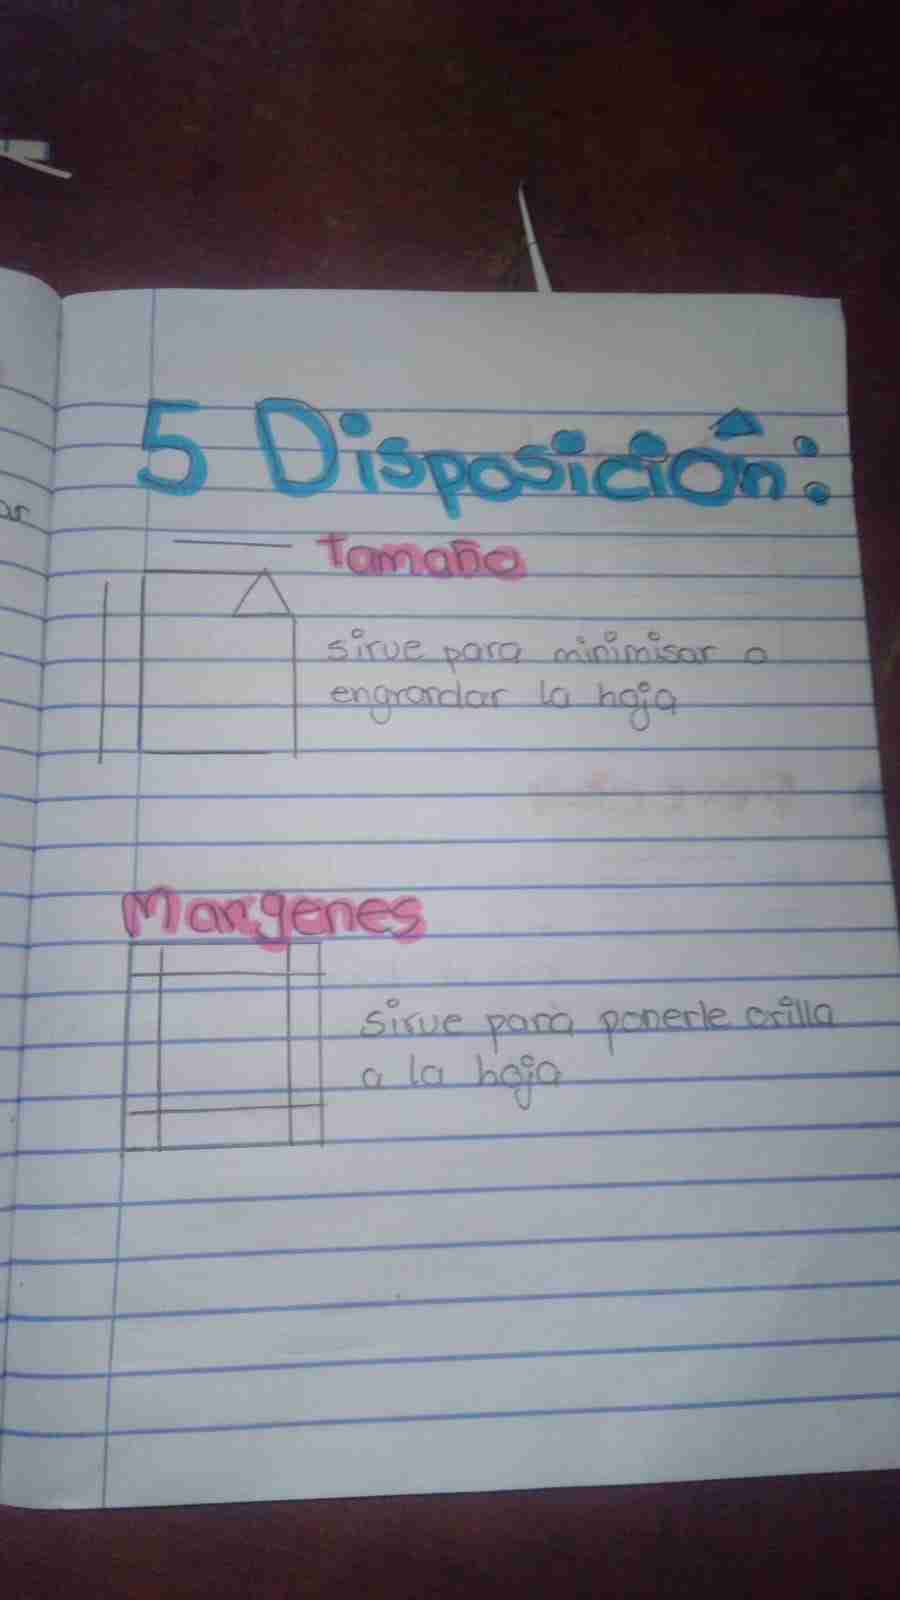 5 Disposición:
tamaño
sirve para minimisar o
engrandar la hoja
Margenes
sirve para ponerle orilla
a la hoja
ar